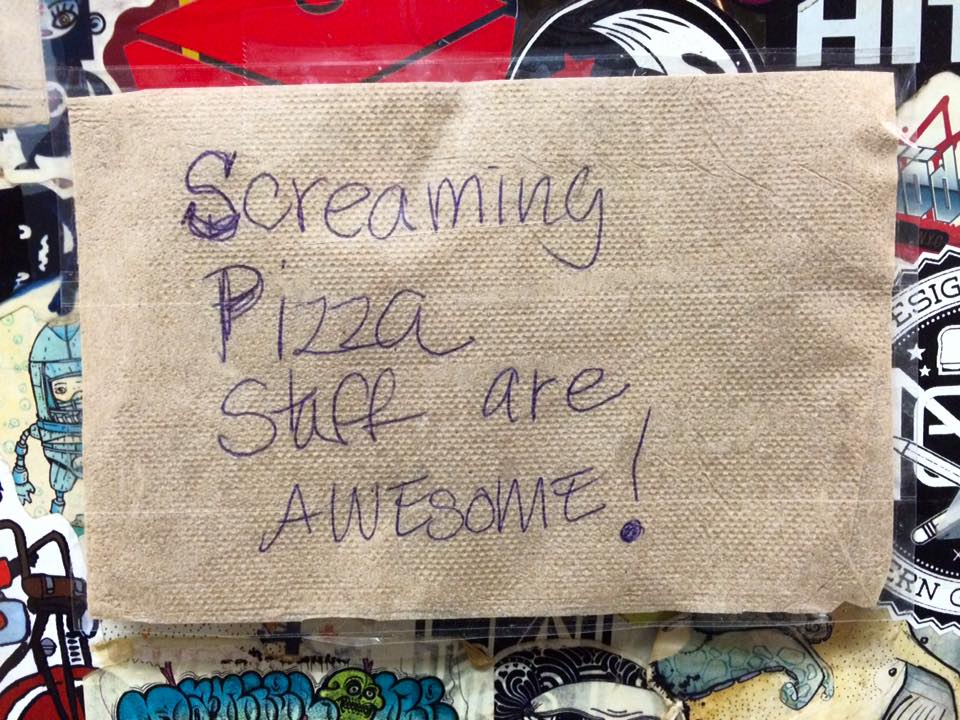 Screaming
Pizza
Staff are
AWESOME!
HIT
ESIG
ERN